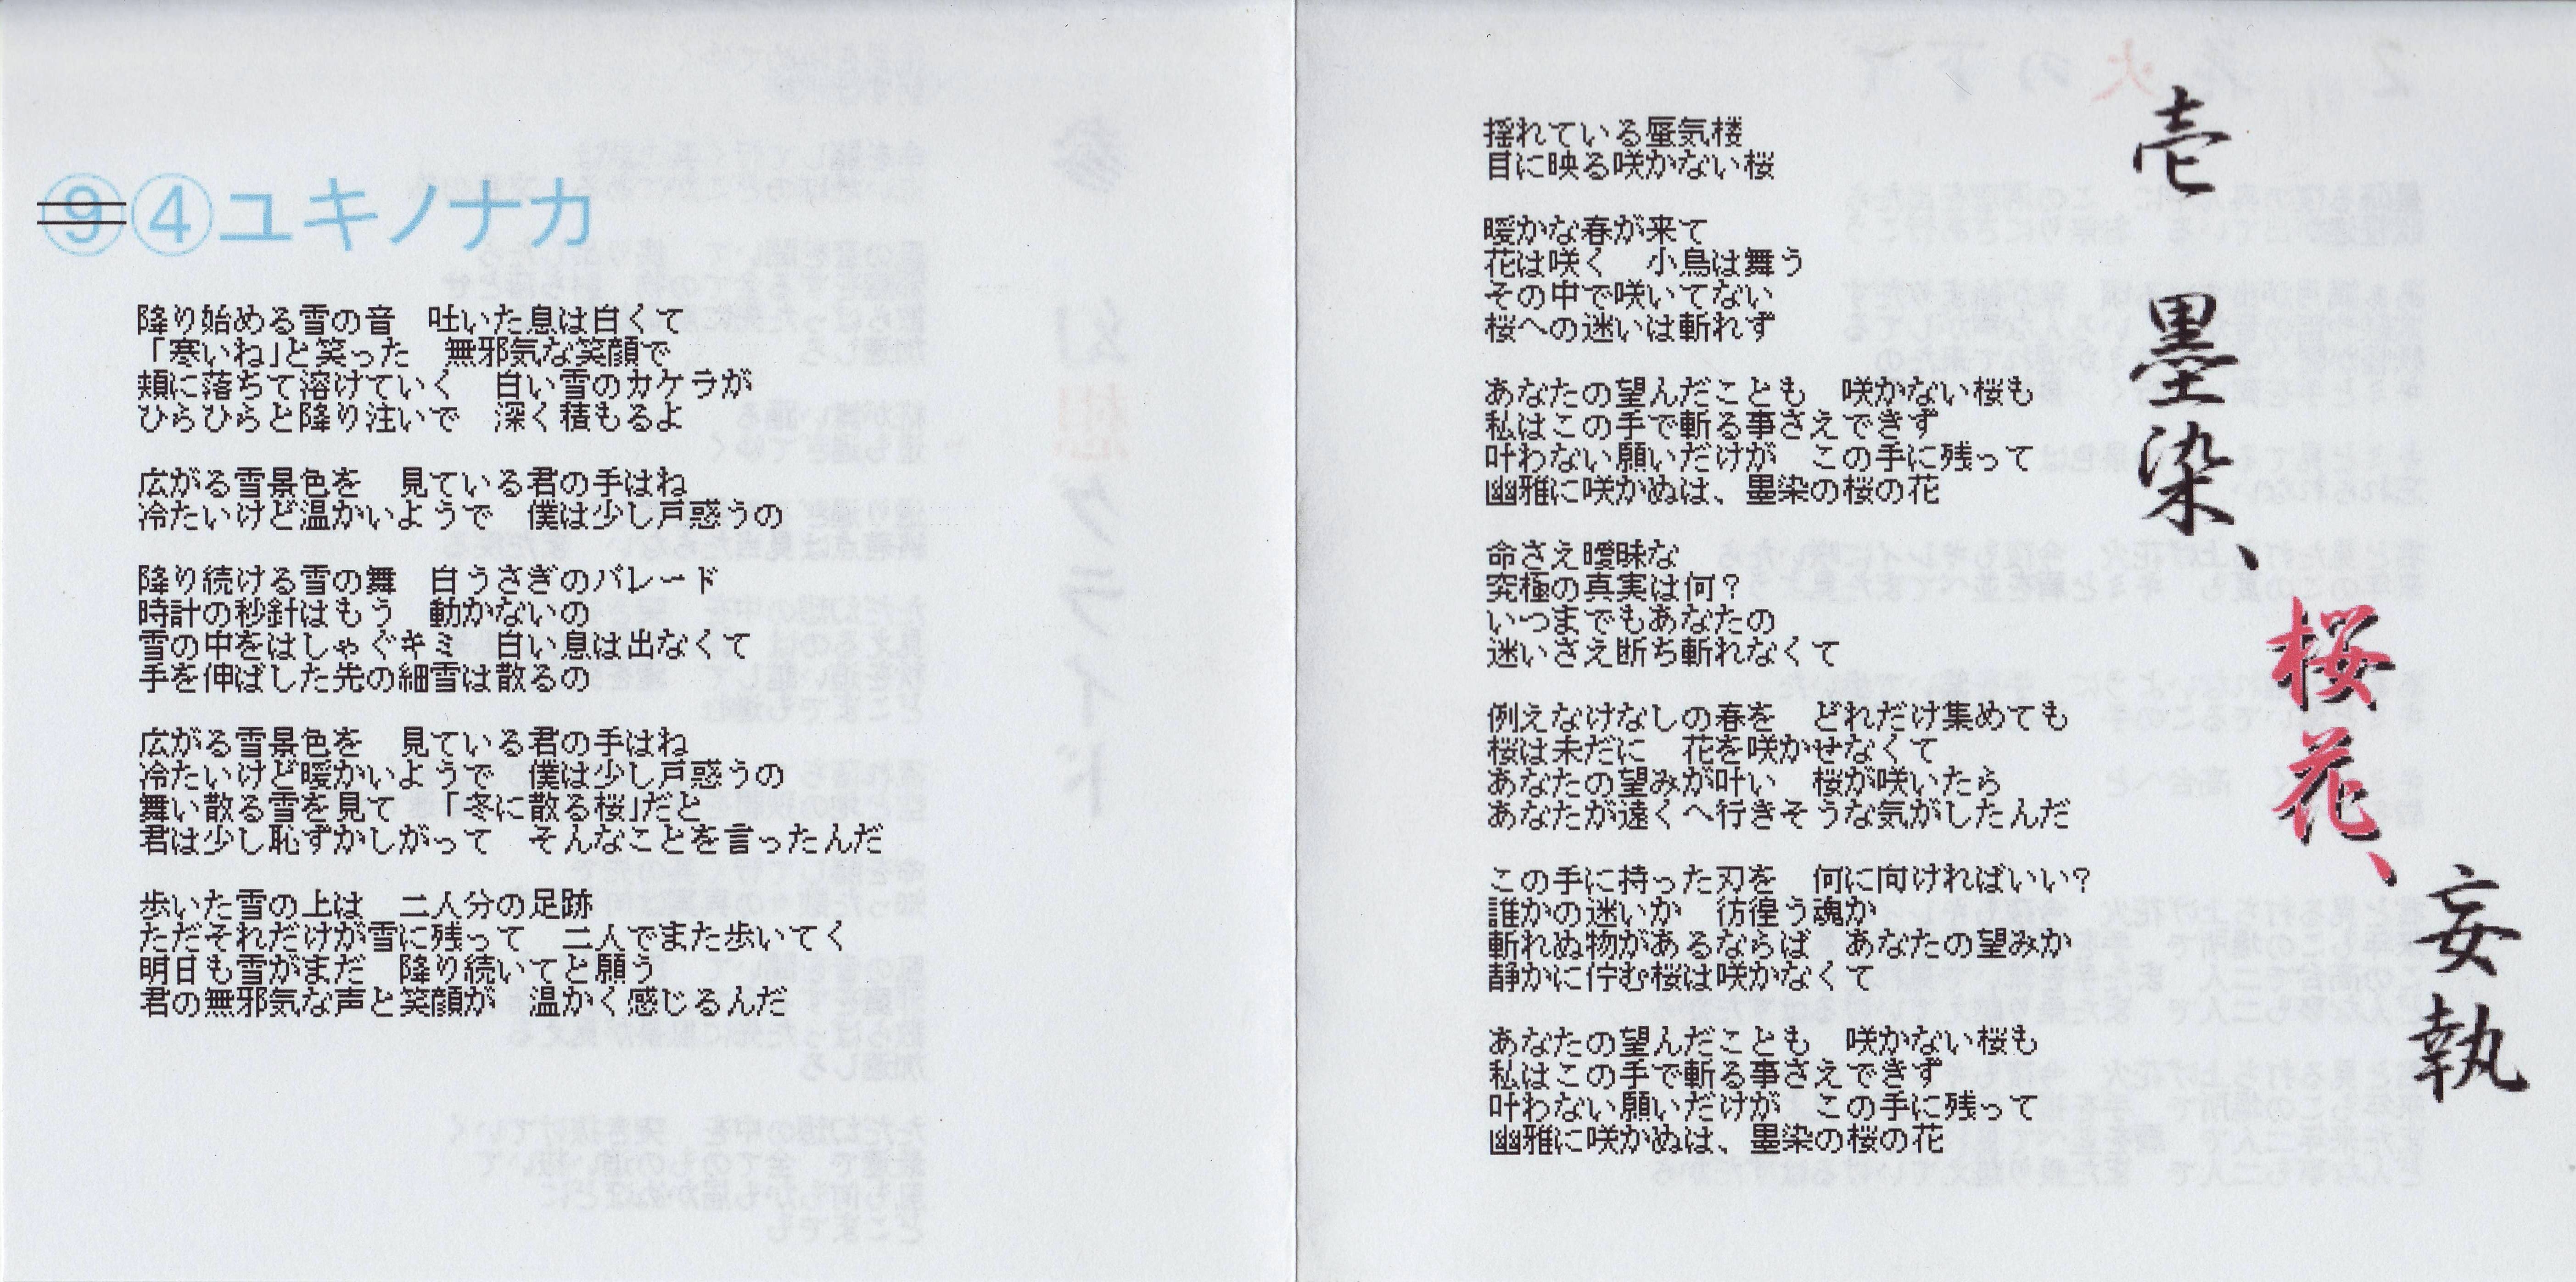 ⑨④ユキノナカ
降り始める雪の音　吐いた息は白くて
「寒いね」と笑った　無邪気な笑顔で
頬に落ちて溶けていく　白い雪のカケラが
ひらひらと降り注いで　深く積もるよ
広がる雪景色を　見ている君の手はね
冷たいけど温かいようで　僕は少し戸惑うの
降り続ける雪の舞　白うさぎのパレード
時計の秒針はもう　動かないの
雪の中をはしゃぐキミ　白い息は出なくて
手を伸ばした先の細雪は散るの
広がる雪景色を　見ている君の手はね
冷たいけど暖かいようで　僕は少し戸惑うの
舞い散る雪を見て　「冬に散る桜」だと
君は少し恥ずかしがって　そんなことを言ったんだ
歩いた雪の上は　二人分の足跡
ただそれだけが雪に残って　二人でまた歩いてく
明日も雪がまだ　降り続いてと願う
君の無邪気な声と笑顔が　温かく感じるんだ
壱　墨染、桜花、妄執
揺れている蜃気楼
目に映る咲かない桜
暖かな春が来て
花は咲く　小鳥は舞う
その中で咲いてない
桜への迷いは斬れず
あなたの望んだことも　咲かない桜も
私はこの手で斬る事さえできず
叶わない願いだけが　この手に残って
幽雅に咲かぬは、墨染の桜の花
命さえ曖昧な
究極の真実は何？
いつまでもあなたの
迷いさえ断ち斬れなくて
例えなけなしの春を　どれだけ集めても
桜は未だに　花を咲かせなくて
あなたの望みが叶い　桜が咲いたら
あなたが遠くへ行きそうな気がしたんだ
この手に持った刃を　何に向ければいい？
誰かの迷いか　彷徨う魂か
斬れぬ物があるならば　あなたの望みか
静かに佇む桜は咲かなくて
あなたの望んだことも　咲かない桜も
私はこの手で斬る事さえできず
叶わない願いだけが　この手に残って
幽雅に咲かぬは、墨染の桜の花